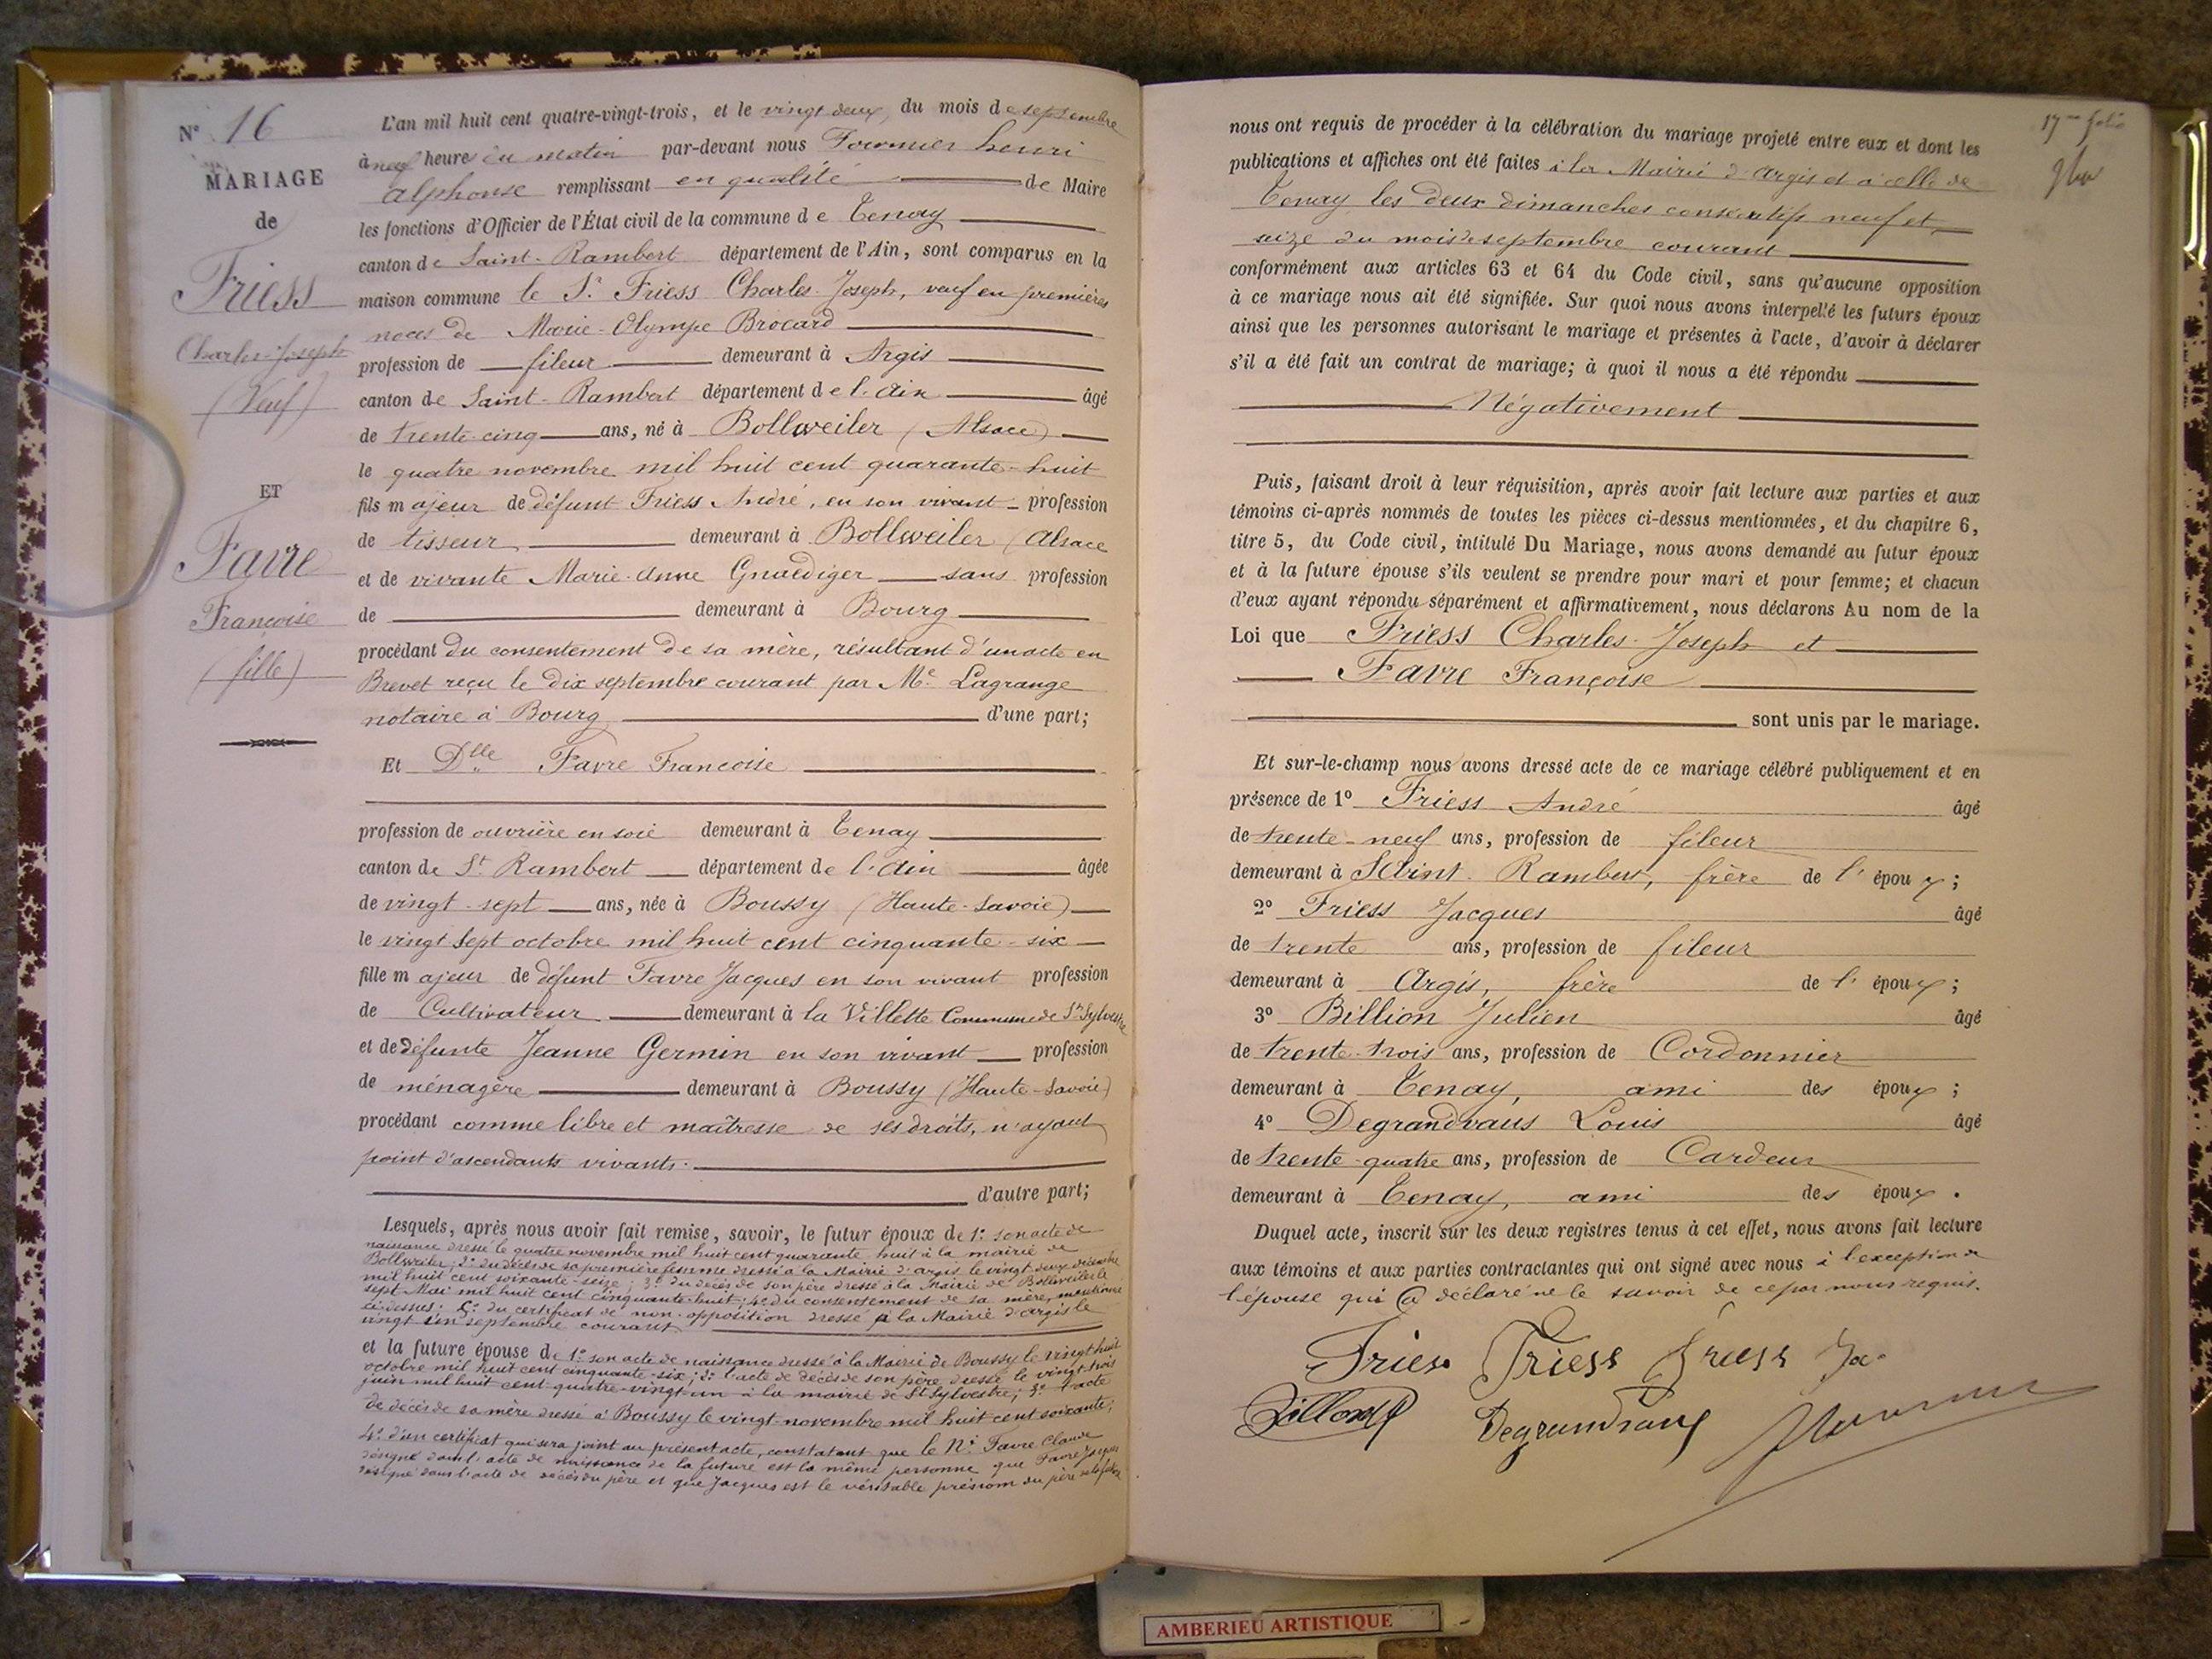 N° 16
MARIAGE
de
Friess
Charles-Joseph
(Veuf)
ET
Favre
Françoise
(fille)
L'an mil huit cent quatre-vingt-trois, et le vingt deux, du mois de septembre
à neuf heure du matin par-devant nous Fournier henri
alphonse remplissant en qualité de Maire
les fonctions d'Officier de l'État civil de la commune de Tenay
canton de Saint-Rambert département de l'Ain, sont comparus en la
maison commune le Sr Friess Charles-Joseph, veuf en premières
noces de Marie-Olympe Brocard
profession de fileur demeurant à Argis
canton de Saint-Rambert département de l'Ain âgé
de trente-cinq ans, né à Bollweiler (Alsace)
le quatre novembre mil huit cent quarante-huit
fils majeur de défunt Friess André, en son vivant profession
de tisseur demeurant à Bollweiler (Alsace
et de vivante Marie-Anne Gnaediger sans profession
de demeurant à Bourg
procédant du consentement de sa mère, résultant d'un acte en
Brevet reçu le dix septembre courant par Me Lagrange
notaire à Bourg d'une part;
Et Dlle Favre Françoise
profession de ouvrière en soie demeurant à Tenay
canton de St Rambert département de l'Ain âgée
de vingt-sept ans, née à Boussy (Haute-Savoie)
le vingt sept octobre mil huit cent cinquante-six
fille majeur de défunt Favre Jacques en son vivant profession
de Cultivateur demeurant à la Villette Commune de St Sylvestre
et de défunte Jeanne Germin en son vivant profession
de ménagère demeurant à Boussy (Haute-Savoie)
procédant comme libre et maîtresse de ses droits, n'ayant
point d'ascendants vivants.
d'autre part;
Lesquels, après nous avoir fait remise, savoir, le futur époux de 1° son acte de
naissance dressé le quatre novembre mil huit cent quarante-huit à la mairie de
Bollweiler; 2° du décès de sa première femme dressé à la Mairie d'argis le vingt deux décembre
mil huit cent soixante-seize; 3° du décès de son père dressé à la Mairie de Bollweiler le
sept Mai mil huit cent cinquante-huit; 4° du consentement de sa mère, mentionné
ci-dessus; 5° du certificat de non-opposition dressé à la Mairie d'argis le
vingt un septembre courant
et la future épouse de 1° son acte de naissance dressé à la Mairie de Boussy le vingt huit
octobre mil huit cent cinquante-six; 2° l'acte de décès de son père, dressé le vingt-trois
juin mil huit cent quatre-vingt-un à la mairie de St Sylvestre; 3° l'acte
de décès de sa mère dressé à Boussy le vingt novembre mil huit cent soixante;
4° d'un certificat qui sera joint au présent acte, constatant que le Né Favre Claude
désigné dans l'acte de naissance de la future est la même personne que Favre Jacques
désigné dans l'acte de décès du père et que Jacques est le véritable prénom du père de la future
17me folio
nous ont requis de procéder à la célébration du mariage projeté entre eux et dont les
publications et affiches ont été faites à la Mairie d'Argis et à celle de
Tenay les deux dimanches consécutifs neuf et
seize du mois de septembre courant
conformément aux articles 63 et 64 du Code civil, sans qu'aucune opposition
à ce mariage nous ait été signifiée. Sur quoi nous avons interpellé les futurs époux
ainsi que les personnes autorisant le mariage et présentes à l'acte, d'avoir à déclarer
s'il a été fait un contrat de mariage; à quoi il nous a été répondu
Négativement
Puis, faisant droit à leur réquisition, après avoir fait lecture aux parties et aux
témoins ci-après nommés de toutes les pièces ci-dessus mentionnées, et du chapitre 6,
titre 5, du Code civil, intitulé Du Mariage, nous avons demandé au futur époux
et à la future épouse s'ils veulent se prendre pour mari et pour femme; et chacun
d'eux ayant répondu séparément et affirmativement, nous déclarons Au nom de la
Loi que Friess Charles-Joseph et
Favre Françoise
sont unis par le mariage.
Et sur-le-champ nous avons dressé acte de ce mariage célébré publiquement et en
présence de 1° Friess André âgé
de trente-neuf ans, profession de fileur
demeurant à Saint-Rambert, frère de l'époux;
2° Friess Jacques âgé
de trente ans, profession de fileur
demeurant à Argis, frère de l'époux;
3° Billion Julien âgé
de trente-trois ans, profession de Cordonnier
demeurant à Tenay, ami des époux;
4° Degrandvaus Louis âgé
de trente-quatre ans, profession de Cardeur
demeurant à Tenay, ami des époux.
Duquel acte, inscrit sur les deux registres tenus à cet effet, nous avons fait lecture
aux témoins et aux parties contractantes qui ont signé avec nous à l'exception de
l'épouse qui a déclaré ne le savoir de ce par nous requis.
Friess Friess Friess Ja-
Billion Degrandvaus
AMBERIEU ARTISTIQUE